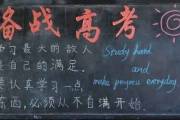 备战高考
学习最大的敌人
是自己的满足。
要认真学习一点
东西,必须从不自满开始。
Study hard
and
make progress everyday